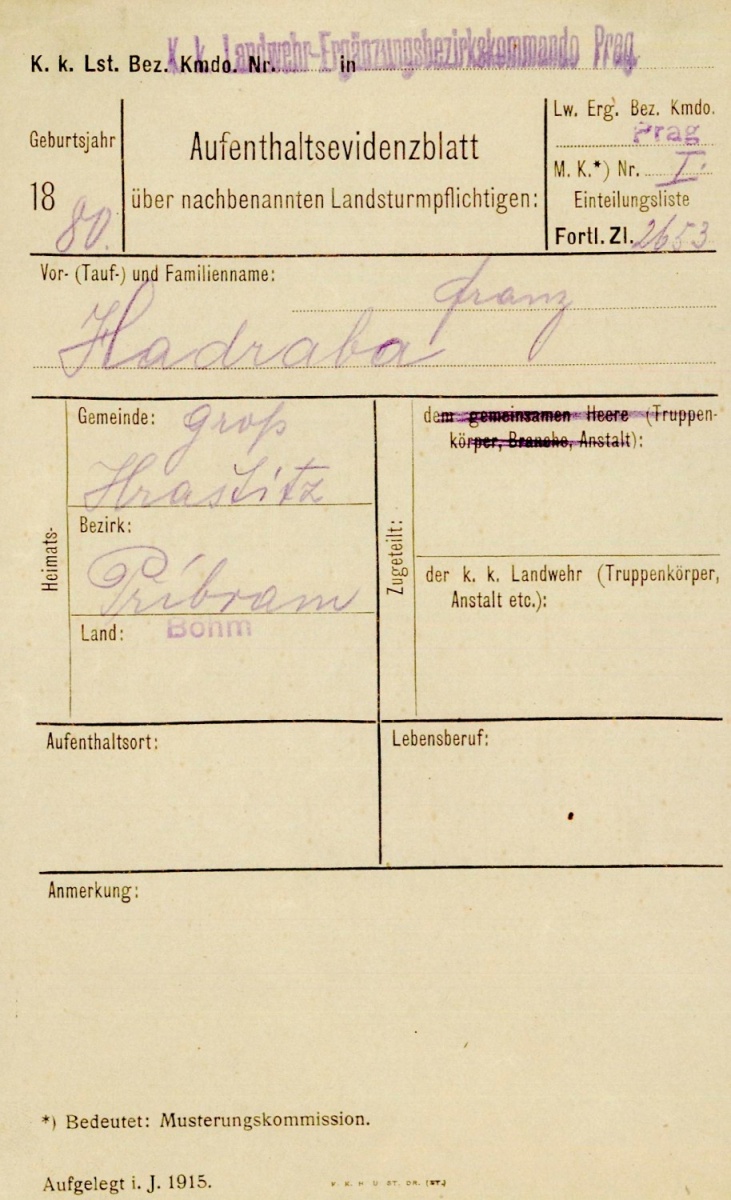 K. k. Landwehr-Ergänzungsbezirkskommando Prag
K. k. Lst. Bez. Kmdo. Nr. in
Geburtsjahr
18 80.
Aufenthaltsevidenzblatt
über nachbenannten Landsturmpflichtigen:
Lw. Erg. Bez. Kmdo.
Prag
M. K.*) Nr. I.
Einteilungsliste
Fortl. Zl. 2653
Vor- (Tauf-) und Familienname:
Franz
Hadraba
Heimats-
Gemeinde: Groß
Hraštitz
Bezirk:
Příbram
Land: Böhm
Zugeteilt:
dem gemeinsamen Heere (Truppen-
körper, Branche, Anstalt):
der k. k. Landwehr (Truppenkörper,
Anstalt etc.):
Aufenthaltsort:
Lebensberuf:
Anmerkung:
*) Bedeutet: Musterungskommission.
Aufgelegt i. J. 1915.